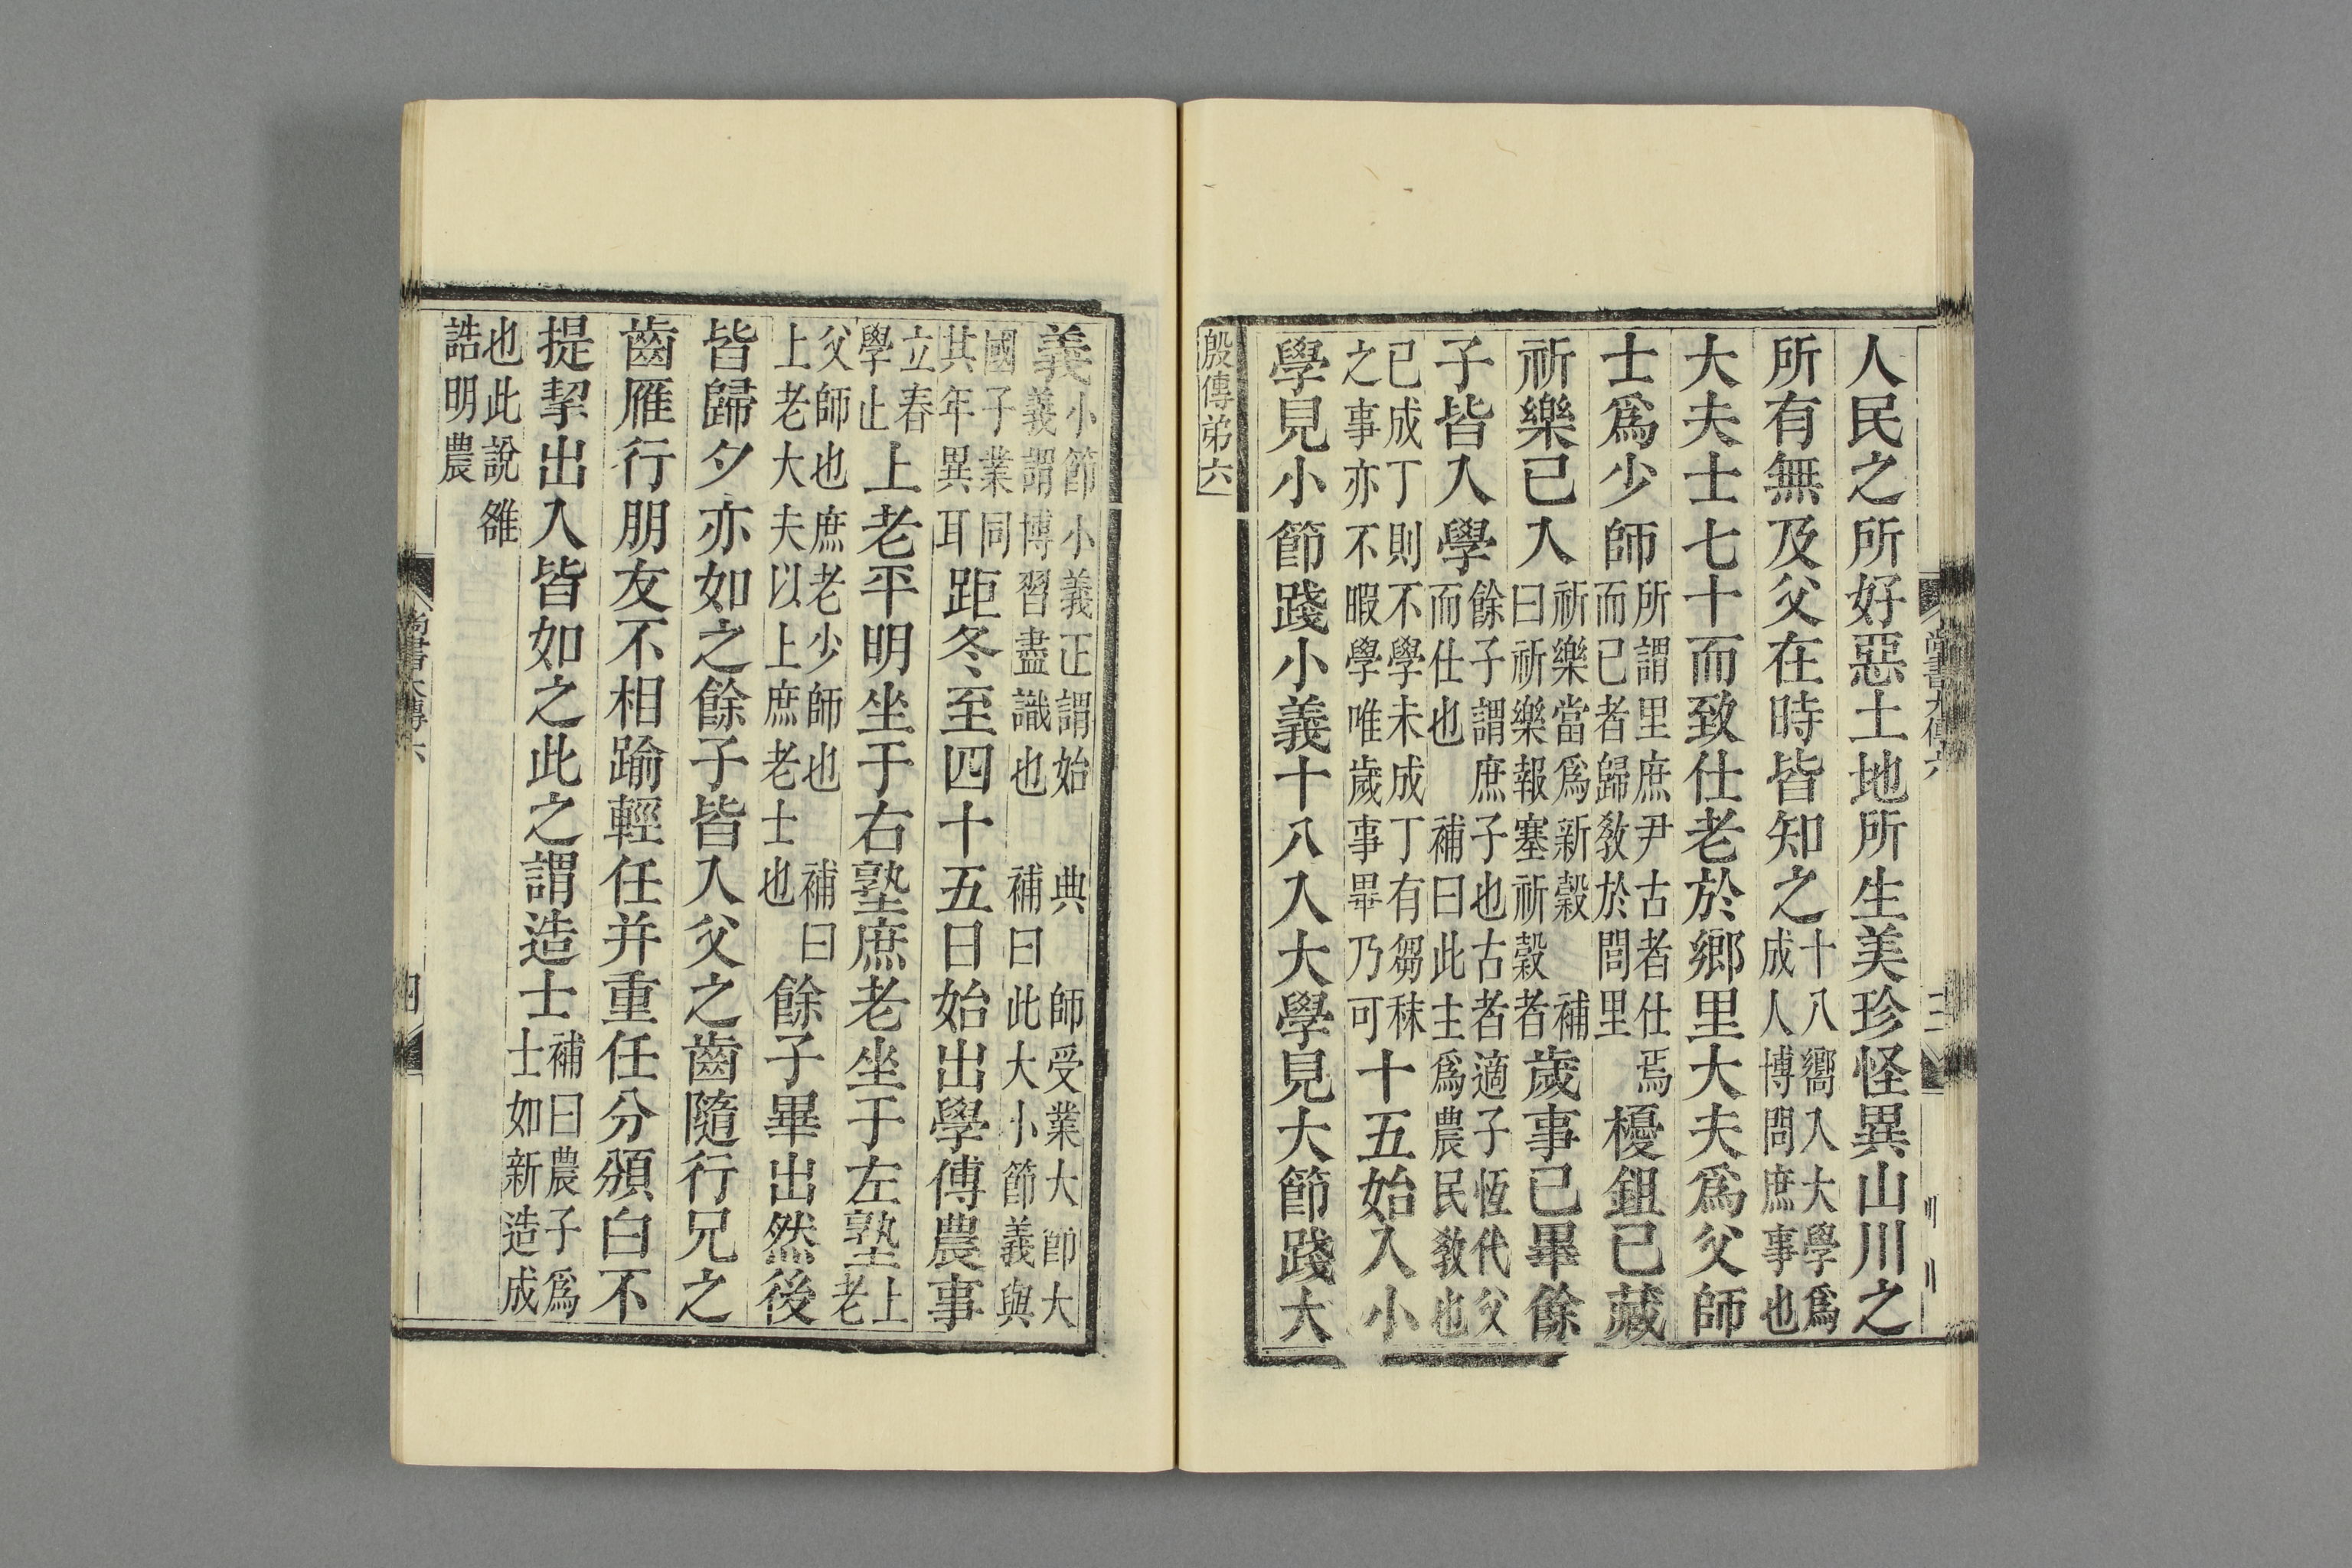 人民之所好惡土地所生美珍怪異山川之
所有無及父在時皆知之十八嚮入大學爲成人博問庶事也
大夫士七十而致仕老於鄉里大夫爲父師
士爲少師所謂里庶尹古者仕焉而已者歸敎於閭里櫌鉏已藏
祈樂已入祈樂當爲新穀曰祈樂報塞祈穀者補歲事已畢餘
子皆入學餘子謂庶子也古者適子恆代父而仕也補曰此主爲農民敎也
已成丁則不學未成丁有芻秣之事亦不暇學唯歲事畢乃可十五始入小
學見小節踐小義十八入大學見大節踐大
殷傳弟六
義小節小義正謂始典師受業大節大義謂博習盡識也補曰此大小節義與
國子業同其年異耳距冬至四十五日始出學傅農事
立春學止上老平明坐于右塾庶老坐于左塾上老
父師也庶老少師也補曰上老大夫以上庶老士也餘子畢出然後
皆歸夕亦如之餘子皆入父之齒隨行兄之
齒雁行朋友不相踰輕任并重任分頒白不
提挈出入皆如之此之謂造士補曰農子爲士如新造成
也此說雒誥明農
尚書大傳六
四